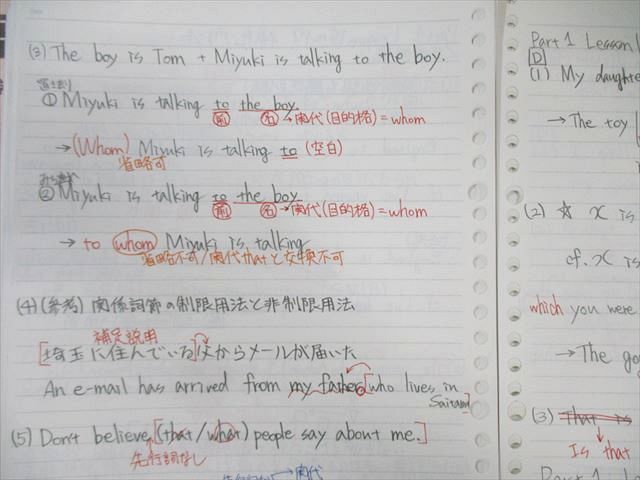 (3) The boy is Tom + Miyuki is talking to the boy.
① Miyuki is talking to the boy.
前 名 → 関代(目的格) = whom
→ (Whom) Miyuki is talking to (空白)
省略可
② Miyuki is talking to the boy
前 名 → 関代(目的格) = whom
→ to whom Miyuki is talking
省略不可/関代thatと交換不可
(4) (参考) 関係詞節の制限用法と非制限用法
補足説明
[埼玉に住んでいる]父からメールが届いた
An e-mail has arrived from my father [who lives in
Saitama]
(5) Don't believe [(that / what) people say about me.]
先行詞なし
関代
Part 1 Lesson
D
(1) My daughte
→ The toy
(2) ☆ x is
cf. x is
which you were
→ The go
(3) That is
Is that